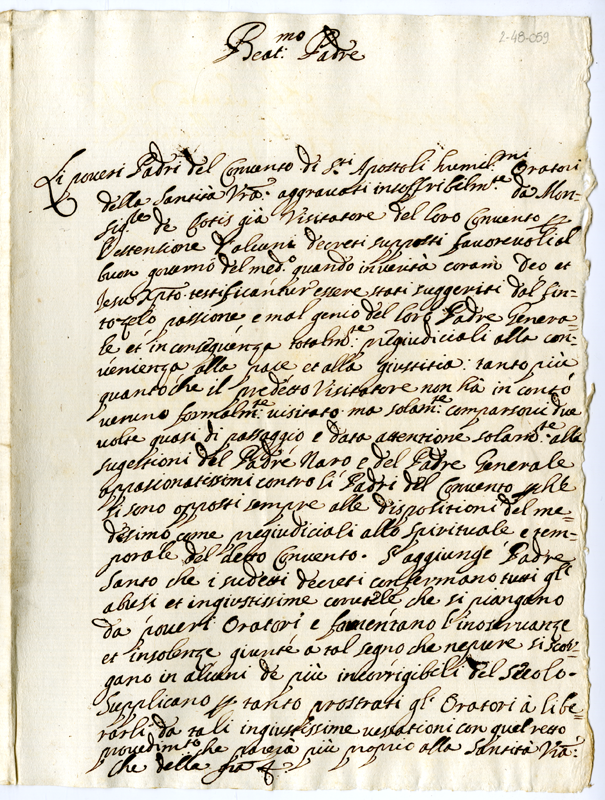 2-48-059
Beat.mo Padre
Li poveri Padri del Convento di S.ti Apostoli humil.mi Oratori
della Santità Vra. aggravati insoffribilm.te da Mon-
sig.re de Cotis già Visitatore del loro Convento p
l'estensione d'alcuni decreti supposti favorevoli al
buon governo del med.o quando in verità coram Deo et
Jesu Xpto. testificantur essere stati suggeriti dal fin-
to zelo passione e mal genio del loro Padre Genera-
le et in conseguenza totalm.te pregiudiciali alla con-
venienza alla pace et alla giustitia: tanto più
quanto che il predetto Visitatore non hà in conto
veruno formalm.te visitato ma solam.te comparsovi due
volte quasi di passaggio e data attenzione solam.te alle
sugestioni del Padre Naro e del Padre Generale
appasionatissimi contro li Padri del Convento p che
si sono opposti sempre alle dispositioni del me-
desimo come pregiudiciali allo spirituale e tem-
porale del detto Convento. S'aggiunge Padre
Santo che i sudetti decreti confermano tutti gli
abusi et ingiustissime corutele che si piangono
da poveri Oratori e fomentano l'inosservanze
et insolenze giunte a tal segno che nepure si scor-
gano in alcuni de più incorrigibili del Secolo.
Supplicano p tanto prostrati gl'Oratori à libe-
rarli da tali ingiustissime vessationi con quel retto
provedim.to che parerà più proprio alla Santità Vra.
che della gra